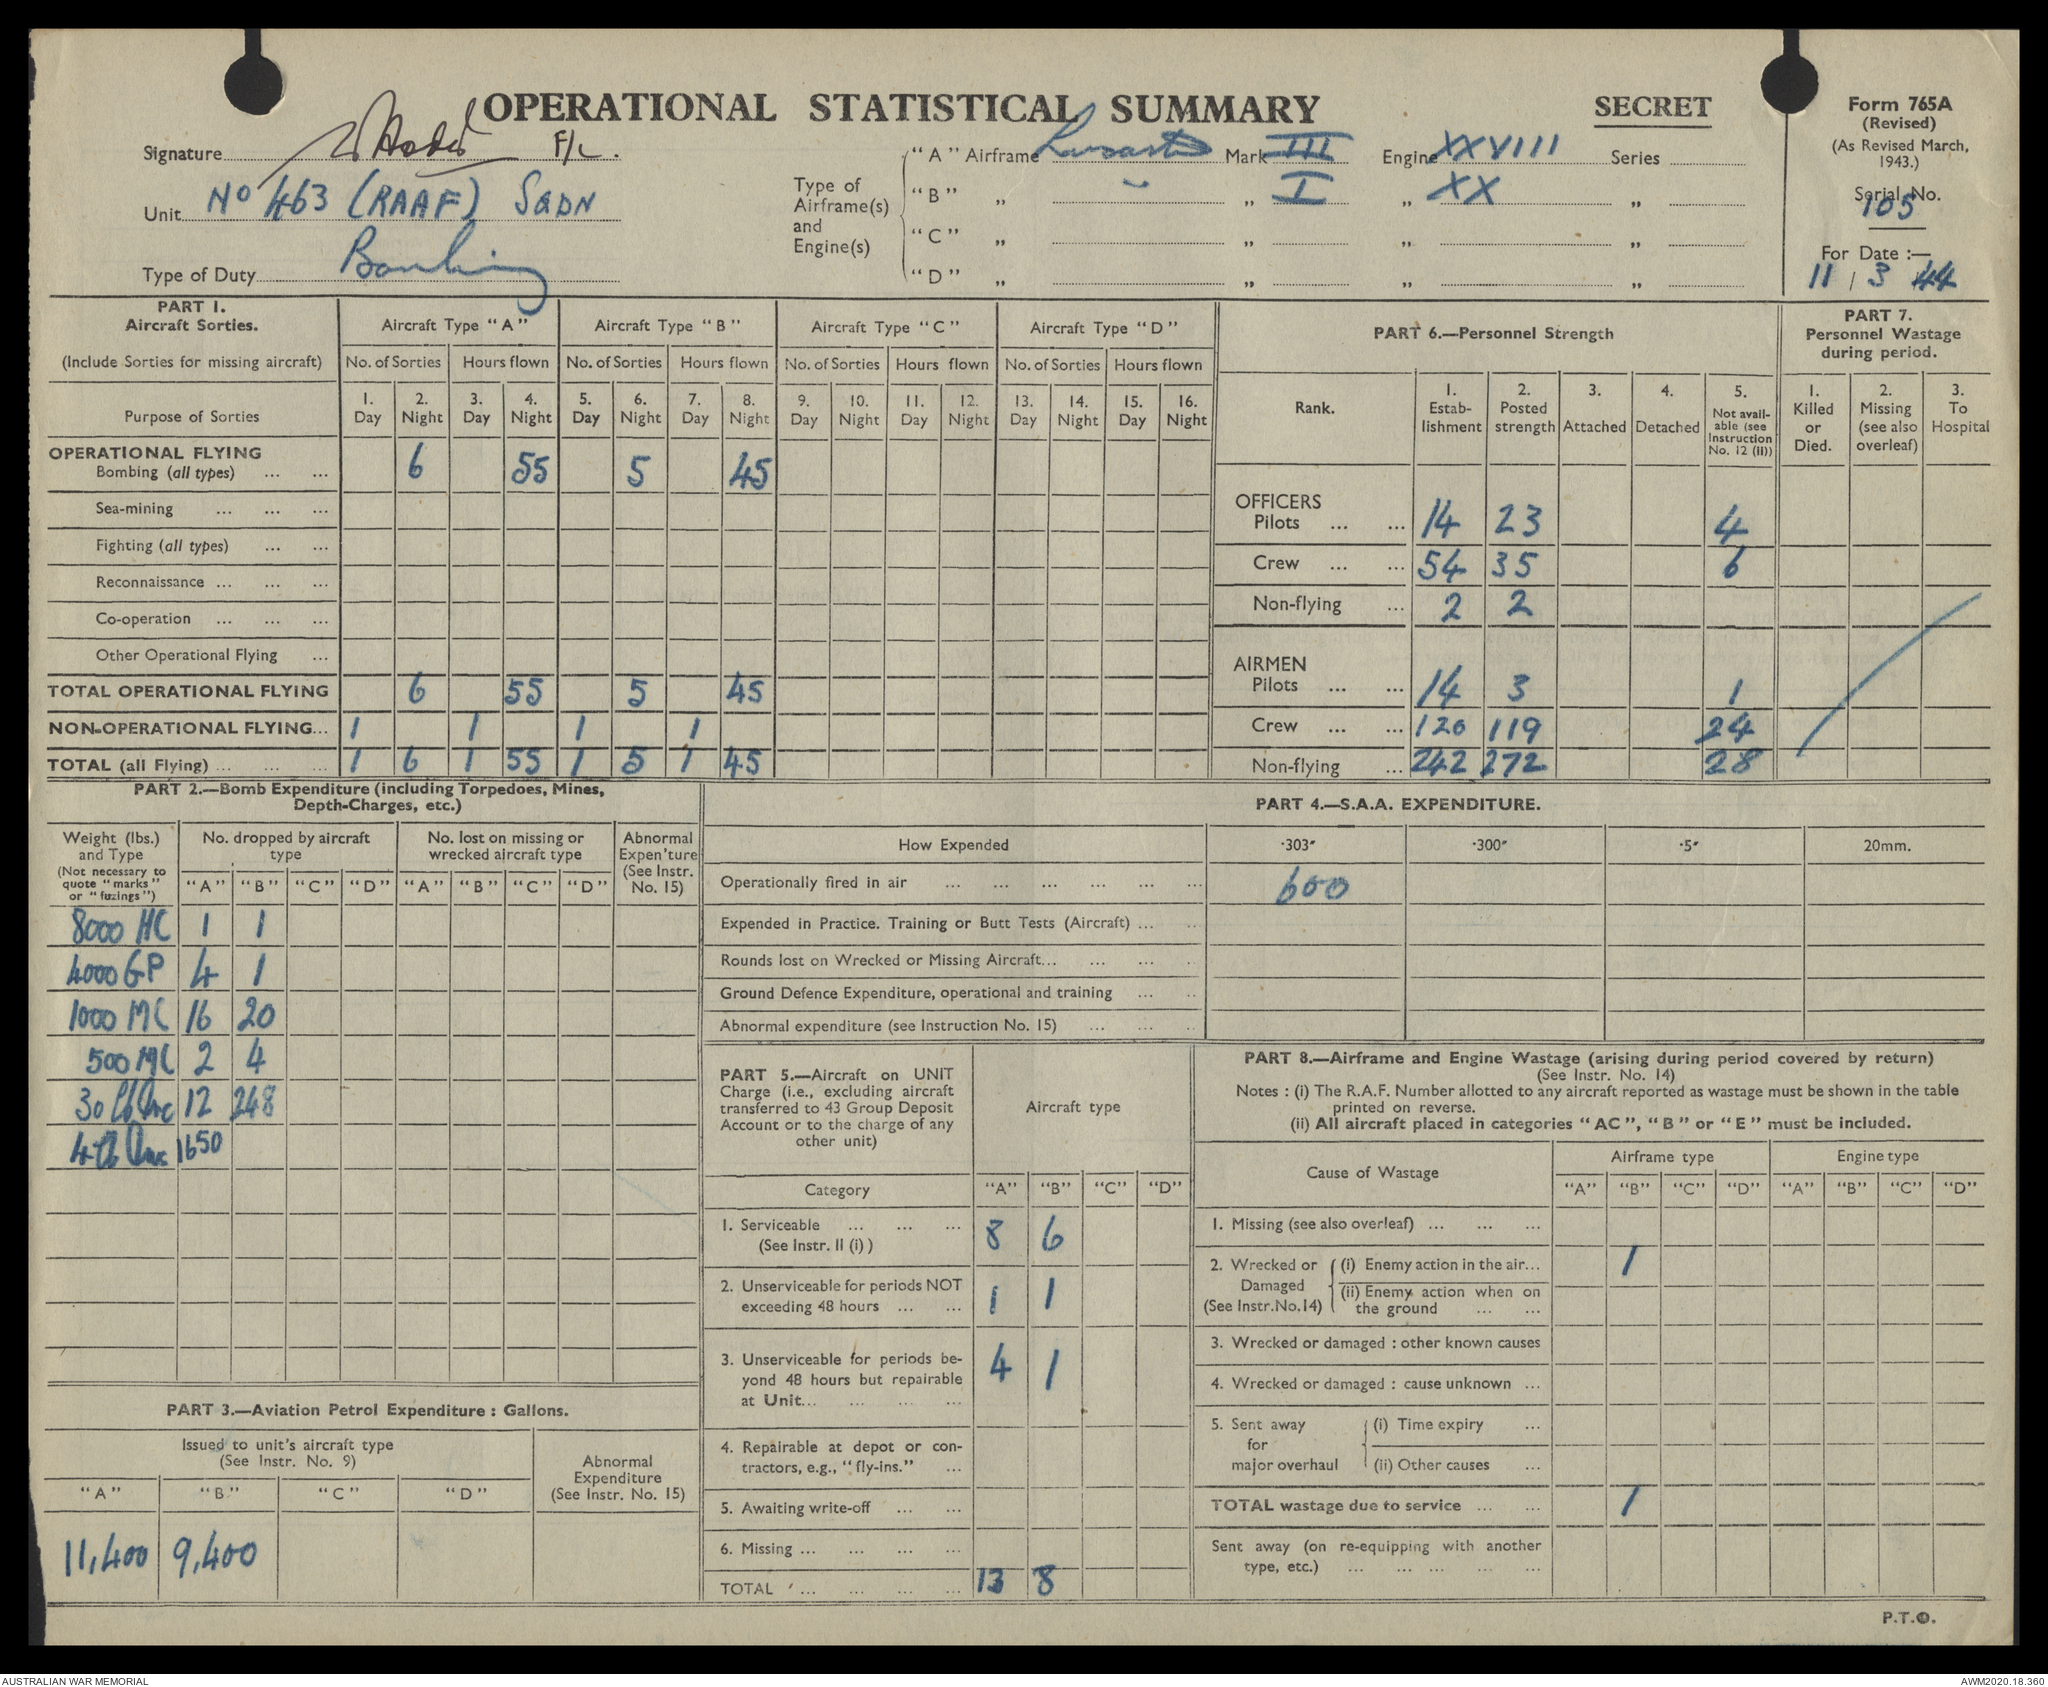 OPERATIONAL STATISTICAL SUMMARY
SECRET
Form 765A
(Revised)
(As Revised March,
1943.)
Serial No.
105
For Date :—
11 / 3 44
Signature F/L.
Unit No 463 (RAAF) SQDN
Type of Duty Bombing
Type of
Airframe(s)
and
Engine(s)
"A" Airframe Lancaster Mark III Engine XXVIII Series
"B" „ „ „ I „ XX „
"C" „ „ „ „
"D" „ „ „ „
PART 1.
Aircraft Sorties.
(Include Sorties for missing aircraft)
Aircraft Type "A" Aircraft Type "B" Aircraft Type "C" Aircraft Type "D"
No. of Sorties Hours flown No. of Sorties Hours flown No. of Sorties Hours flown No. of Sorties Hours flown
Purpose of Sorties
1. Day 2. Night 3. Day 4. Night 5. Day 6. Night 7. Day 8. Night 9. Day 10. Night 11. Day 12. Night 13. Day 14. Night 15. Day 16. Night
OPERATIONAL FLYING
Bombing (all types) ... ... 6 55 5 45
Sea-mining ... ... ...
Fighting (all types) ... ...
Reconnaissance ... ... ...
Co-operation ... ... ...
Other Operational Flying ...
TOTAL OPERATIONAL FLYING 6 55 5 45
NON-OPERATIONAL FLYING... 1 1 1 1
TOTAL (all Flying) ... ... ... 1 6 1 55 1 5 1 45
PART 6.—Personnel Strength
Rank.
1. Estab- lishment
2. Posted strength
3. Attached
4. Detached
5. Not avail- able (see Instruction No. 12 (ii))
OFFICERS
Pilots ... ... 14 23 4
Crew ... ... 54 35 6
Non-flying ... 2 2
AIRMEN
Pilots ... ... 14 3 1
Crew ... ... 126 119 24
Non-flying ... 242 272 28
PART 7.
Personnel Wastage
during period.
1. Killed or Died.
2. Missing (see also overleaf)
3. To Hospital
PART 2.—Bomb Expenditure (including Torpedoes, Mines,
Depth-Charges, etc.)
Weight (lbs.)
and Type
(Not necessary to
quote "marks"
or "fuzings")
No. dropped by aircraft
type
No. lost on missing or
wrecked aircraft type
Abnormal
Expen'ture
(See Instr.
No. 15)
"A" "B" "C" "D" "A" "B" "C" "D"
8000 HC 1 1
4000 GP 4 1
1000 MC 16 20
500 MC 2 4
30 lb Inc 12 248
4 lb Inc 1650
PART 3.—Aviation Petrol Expenditure : Gallons.
Issued to unit's aircraft type
(See Instr. No. 9)
Abnormal
Expenditure
(See Instr. No. 15)
"A" "B" "C" "D"
11,400 9,400
PART 4.—S.A.A. EXPENDITURE.
How Expended ·303" ·300" ·5" 20mm.
Operationally fired in air ... ... ... ... ... ... 600
Expended in Practice. Training or Butt Tests (Aircraft) ... ...
Rounds lost on Wrecked or Missing Aircraft... ... ... ..
Ground Defence Expenditure, operational and training ... ..
Abnormal expenditure (see Instruction No. 15) ... ... ..
PART 5.—Aircraft on UNIT
Charge (i.e., excluding aircraft
transferred to 43 Group Deposit
Account or to the charge of any
other unit)
Aircraft type
Category "A" "B" "C" "D"
1. Serviceable ... ... ... 8 6
(See Instr. II (i) )
2. Unserviceable for periods NOT
exceeding 48 hours ... ... 1 1
3. Unserviceable for periods be-
yond 48 hours but repairable
at Unit... ... ... ... 4 1
4. Repairable at depot or con-
tractors, e.g., "fly-ins." ...
5. Awaiting write-off ... ...
6. Missing ... ... ... ...
TOTAL ... ... ... ... 13 8
PART 8.—Airframe and Engine Wastage (arising during period covered by return)
(See Instr. No. 14)
Notes : (i) The R.A.F. Number allotted to any aircraft reported as wastage must be shown in the table
printed on reverse.
(ii) All aircraft placed in categories "AC", "B" or "E" must be included.
Cause of Wastage
Airframe type Engine type
"A" "B" "C" "D" "A" "B" "C" "D"
1. Missing (see also overleaf) ... ... ...
2. Wrecked or
Damaged
(See Instr.No.14)
(i) Enemy action in the air... 1
(ii) Enemy action when on
the ground ... ...
3. Wrecked or damaged : other known causes
4. Wrecked or damaged : cause unknown ...
5. Sent away
for
major overhaul
(i) Time expiry ...
(ii) Other causes ...
TOTAL wastage due to service ... ... 1
Sent away (on re-equipping with another
type, etc.) ... ... ... ... ...
P.T.O.
AUSTRALIAN WAR MEMORIAL
AWM2020.18.360